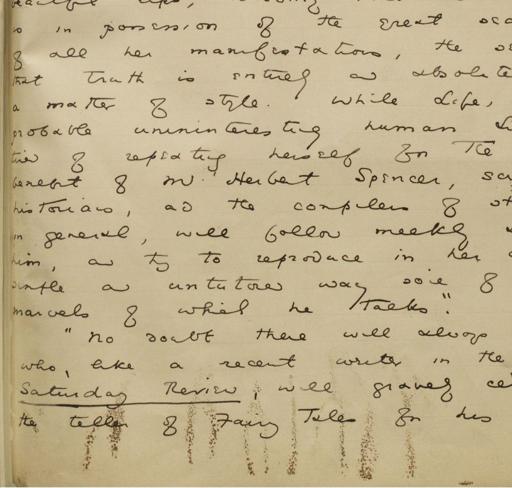 is in possession of the great sec
of all her manifestations, the se
that truth is entirely and absolute
a matter of style. While Life,
probable uninteresting human L
tired of repeating herself for The
benefit of Mr Herbert Spencer, sc
historians, and the compilers of st
in general, will follow meekly
him, and try to reproduce in her
simple and untutored way some of
marvels of which he talks".
"No doubt there will always
who, like a recent writer in the
Saturday Review, will gravely ce
the teller of Fairy Tales for his